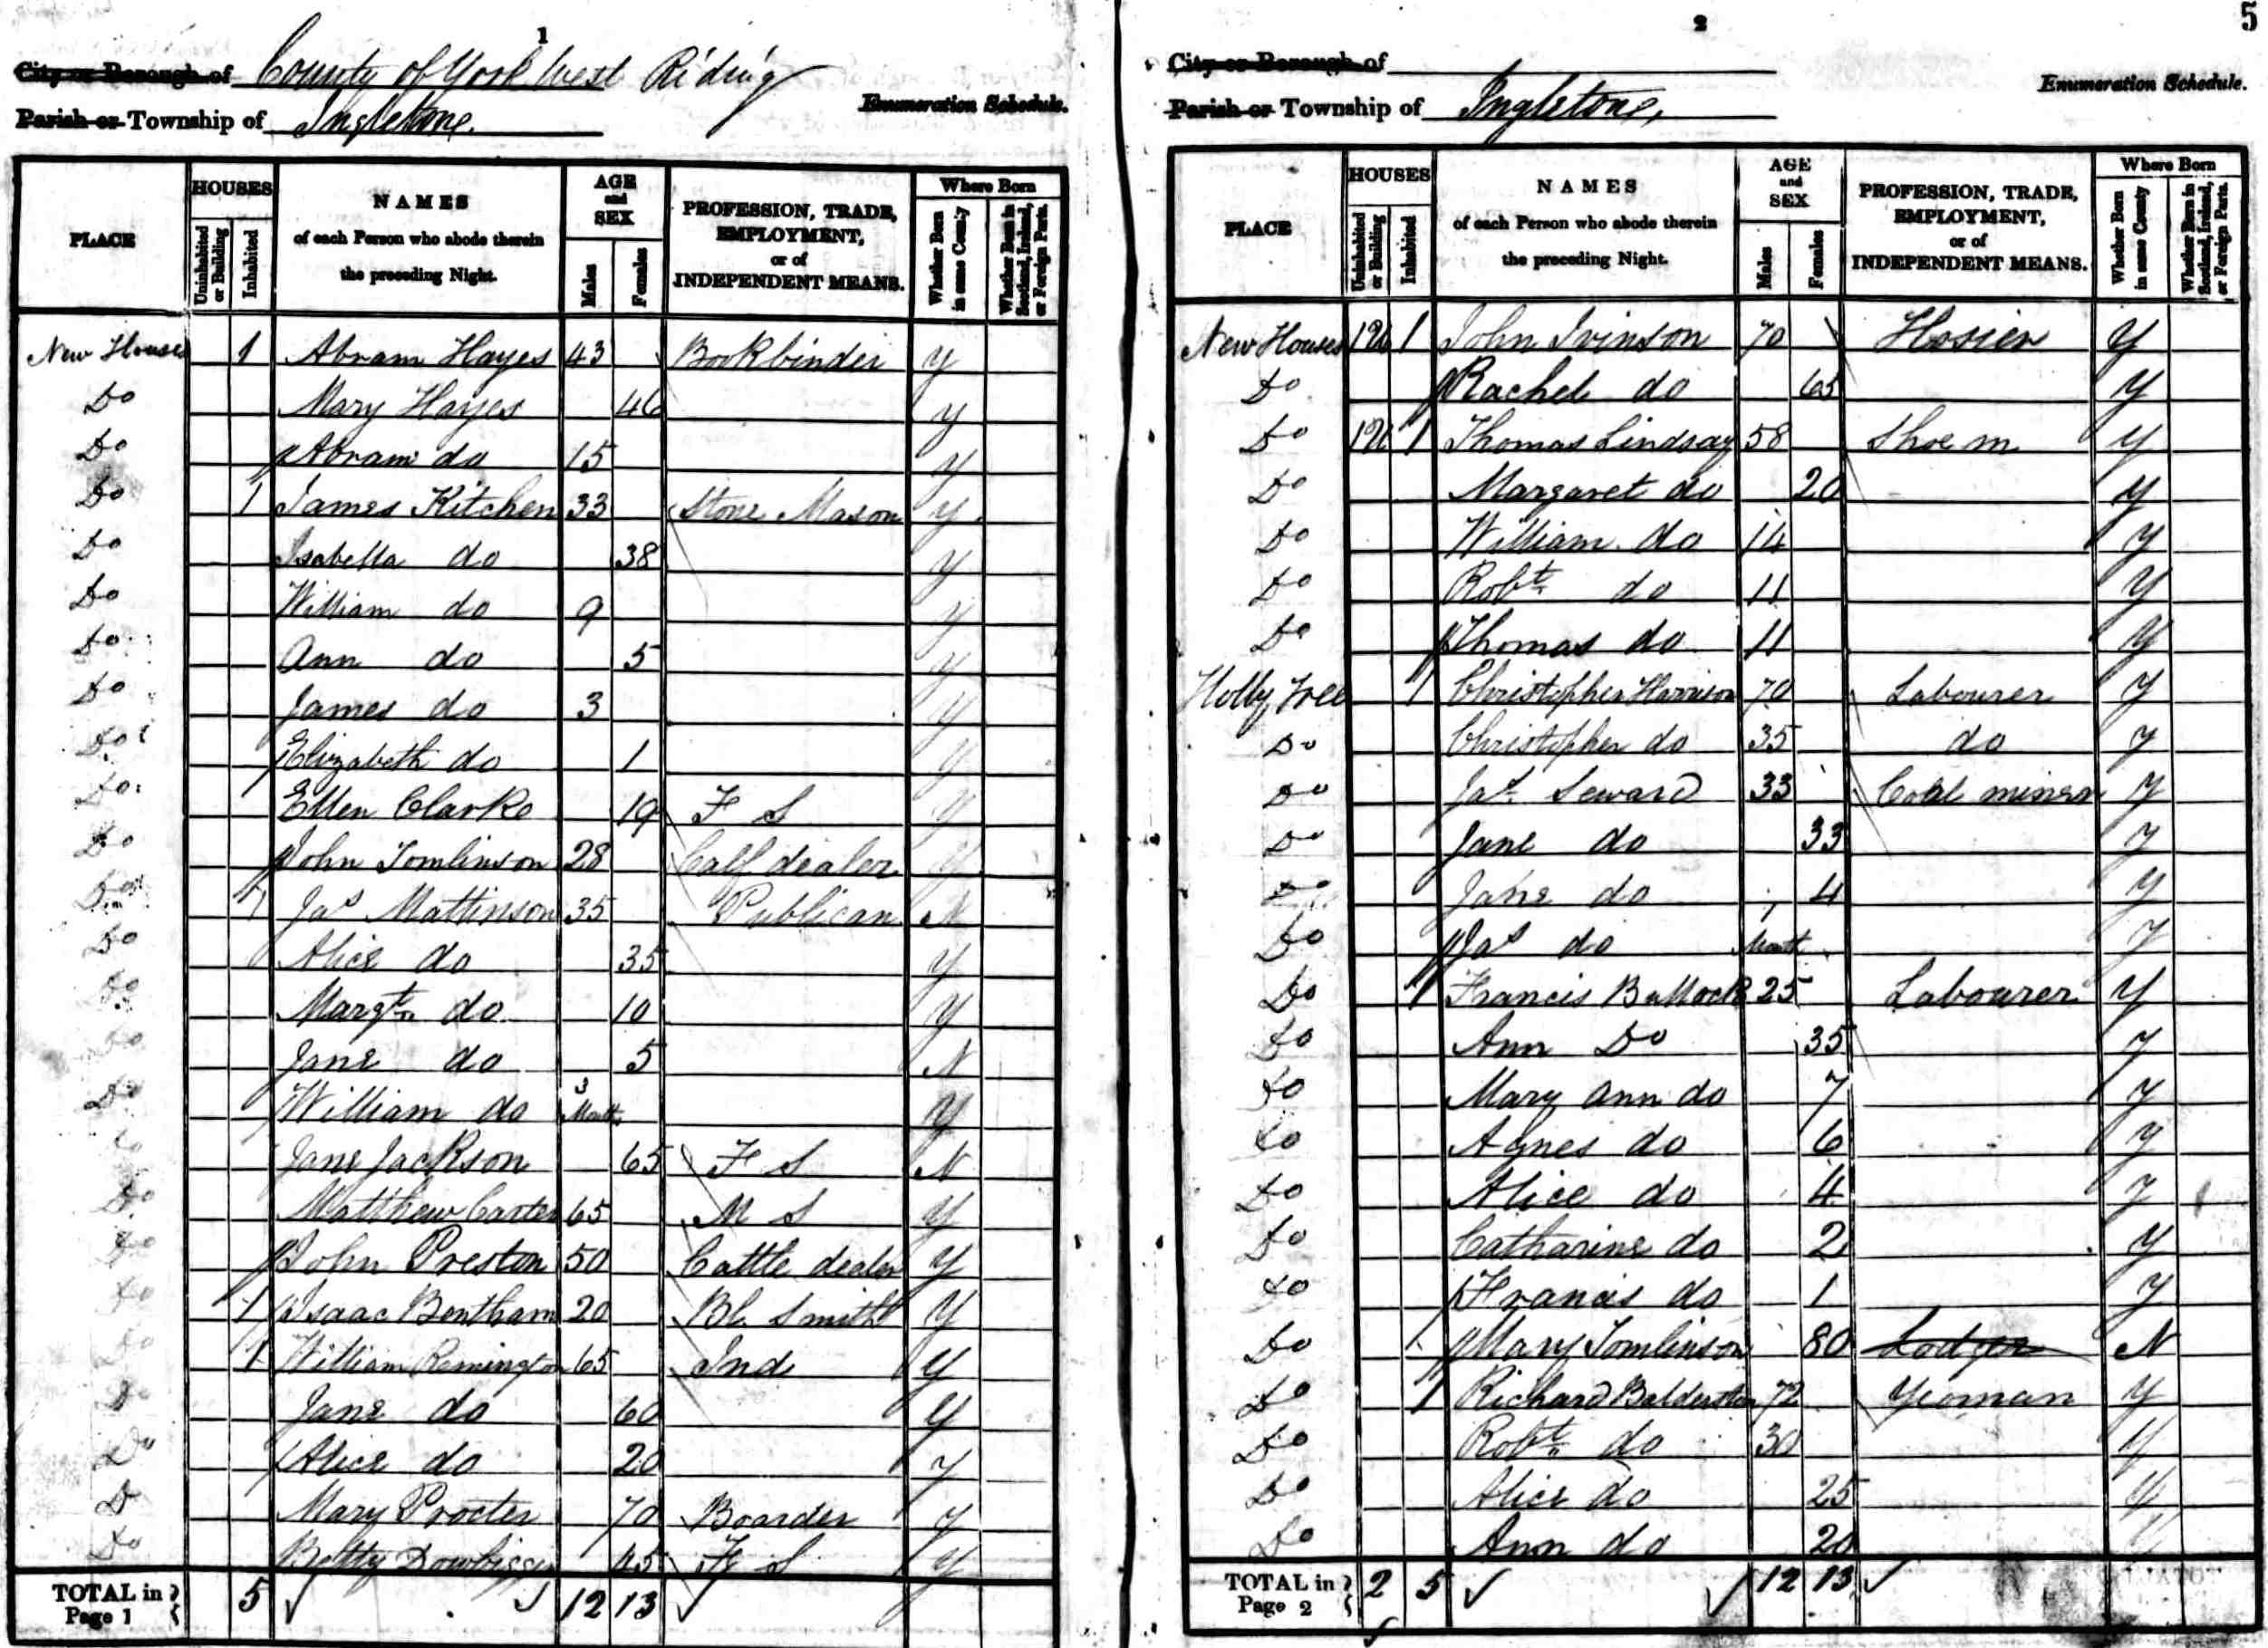 1
City or Borough of County of York West Riding
Enumeration Schedule.
Parish or Township of Ingletone.
PLACE
HOUSES
Uninhabited or Building
Inhabited
NAMES
of each Person who abode therein
the preceding Night.
AGE and SEX
Males
Females
PROFESSION, TRADE, EMPLOYMENT, or of INDEPENDENT MEANS.
Where Born
Whether Born in same County
Whether Born in Scotland, Ireland, or Foreign Parts.
New Houses 1 Abram Hayes 43 Bookbinder Y
Do Mary Hayes 46 Y
Do Abram do 15 Y
Do 1 James Kitchen 33 Stone Mason Y
Do Isabella do 38 Y
Do William do 9 Y
Do Ann do 5 Y
Do James do 3 Y
Do Elizabeth do 1 Y
Do Ellen Clarke 19 F S Y
Do John Tomlinson 28 Calf dealer Y
Do 1 Jas Mattinson 35 Publican N
Do Alice do 35 Y
Do Margt do 10 Y
Do Jane do 5 N
Do William do 3 Month Y
Do Jane Jackson 65 F S N
Do Matthew Carter 65 M S Y
Do John Preston 50 Cattle dealer Y
Do 1 Isaac Bentham 20 Bl. Smith Y
Do 1 William Remington 65 Ind Y
Do Jane do 60 Y
Do Alice do 20 Y
D Mary Procter 70 Boarder Y
Do Betty 45 F S Y
TOTAL in Page 1 5 12 13
2
5
City or Borough of
Enumeration Schedule.
Parish or Township of Ingletone,
PLACE
HOUSES
Uninhabited or Building
Inhabited
NAMES
of each Person who abode therein
the preceding Night.
AGE and SEX
Males
Females
PROFESSION, TRADE, EMPLOYMENT, or of INDEPENDENT MEANS.
Where Born
Whether Born in same County
Whether Born in Scotland, Ireland, or Foreign Parts.
New Houses 1U 1 John Ivinson 70 Hosier Y
Do Rachel do 65 Y
Do 1U 1 Thomas Lindsay 58 Shoe m Y
Do Margaret do 20 Y
Do William do 14 Y
Do Robt do 11 Y
Do Thomas do 11 Y
Holly Tree 1 Christopher Harrison 70 Labourer Y
Do Christopher do 35 do Y
Do Jas Seward 33 Coal miner Y
Do Jane do 33 Y
Do Jane do 4 Y
Do Jas do 1 Month Y
Do 1 Francis Bullock 25 Labourer Y
Do Ann Do 35 Y
Do Mary Ann do 7 Y
Do Agnes do 6 Y
Do Alice do 4 Y
Do Catharine do 2 Y
Do Francis do 1 Y
Do Mary Tomlinson 80 Lodger N
Do 1 Richard Balderston 72 Yeoman Y
Do Robt do 30 Y
Do Alice do 25 Y
Do Ann do 20 Y
TOTAL in Page 2 2 5 12 13